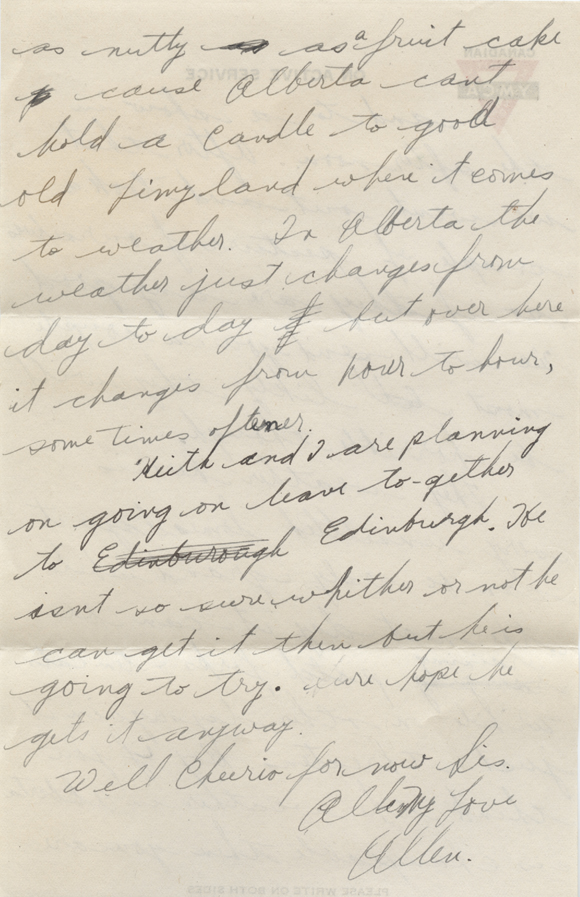 as nutty as a fruit cake
cause Alberta cant
hold a candle to good
old Limy land where it comes
to weather. In Alberta the
weather just changes from
day to day but over here
it changes from hour to hour,
some times oftener.
Keith and I are planning
on going on leave to-gether
to Edinburough Edinburgh. He
isnt so sure whither or not he
can get it then but he is
going to try. Sure hope he
gets it anyway.
Well Cheerio for now Sis.
All my Love
Allen.
CANADIAN
ON ACTIVE SERVICE
Y.M.C.A
PLEASE WRITE ON BOTH SIDES